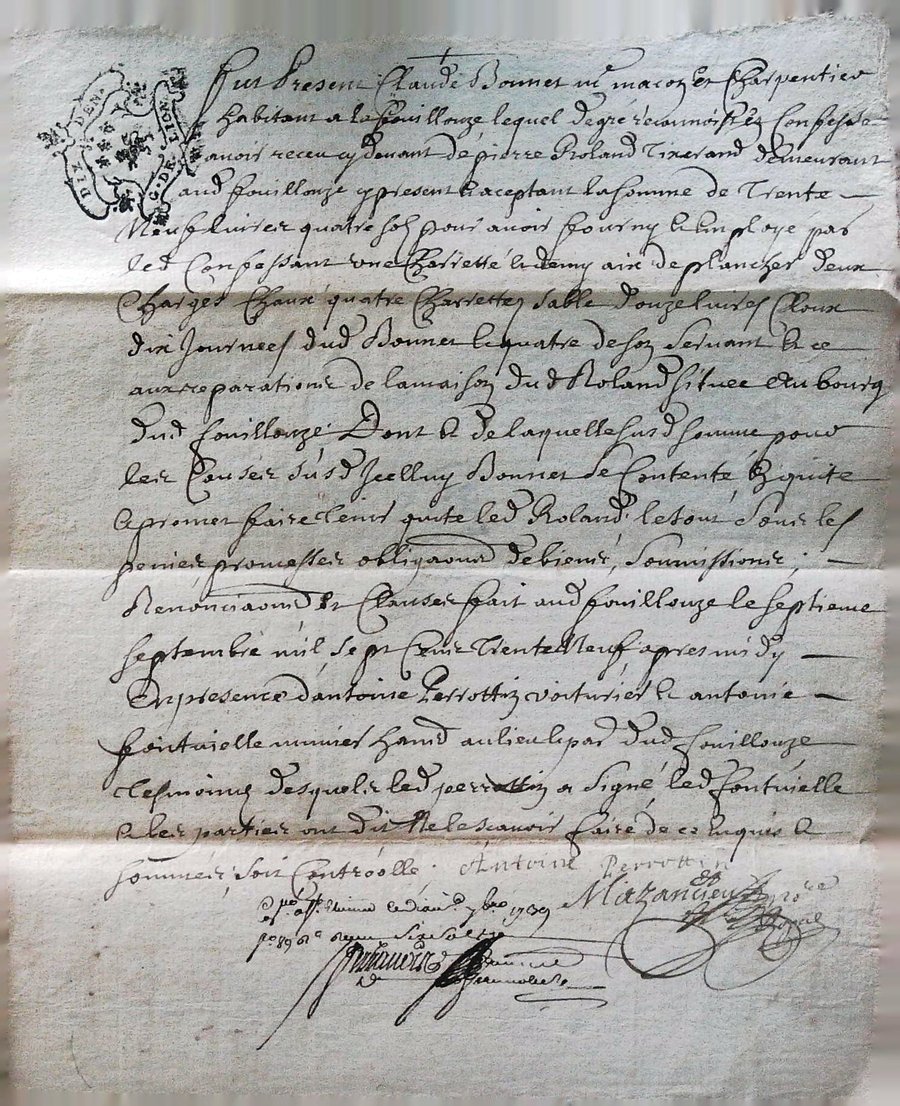 DIX DEN.
G. DE LION
Fut Present Claude Bonnet me macon et Charpentier
habitant a la fouillouze lequel de gré reconnoist et Confesse
avoir receu cy devant de pierre Roland Tixerand demeurant
aud fouillouze cy present et aceptant la somme de Trente
Neuf livres quatre sols pour avoir fourny et Employé par
led Confessant une Charretté et demy aix de plancher deux
Charges Chaux quatre Charrettes sable douze livres Cloux
dix Journees dud Bonnet et quatre de son servant et ce
aux reparations de la maison dud Roland située au bourg
dud fouillouze Dont et de laquelle susd somme pour
les Causes susd Icelluy Bonnet se Contente En quite
et promet faire tenir quite led Roland le tout sous les
peines, promesses obligaons de biens, soumissions,
Renonciaons Et Clauses fait aud fouillouze le septieme
septembre mil sept Cens Trente Neuf apres midy
En presence d'antoine Perrottin voiturier et antoine
fontvielle munier hand au lieu et par dud fouillouze
tesmoins desquels led perrottin a signé, led fontvielle
et les parties ont dit Ne le scavoir faire de ce Enquis et
sommés, soit Controollé. Antoine Perrottin
Mazancieu nore Royal
7bre 1739
fo 89 re receu six sols